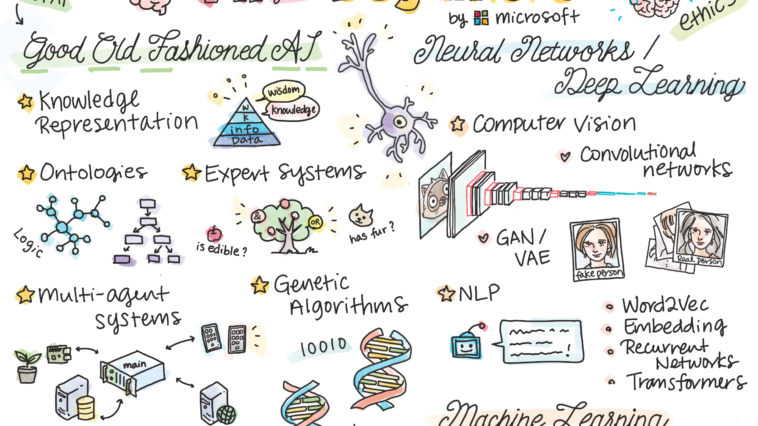 ethics
by microsoft
Good Old Fashioned AI
Neural Networks /
Deep Learning
Knowledge
Representation
wisdom
knowledge
W
K
info
Data
Computer Vision
Convolutional
networks
Ontologies
Expert Systems
Logic
&
OR
is edible?
has fur?
GAN/
VAE
fake person
Real person
Multi-agent
systems
main
Genetic
Algorithms
10010
NLP
Word2Vec
Embedding
Recurrent
Networks
Transformers
Machine Learning